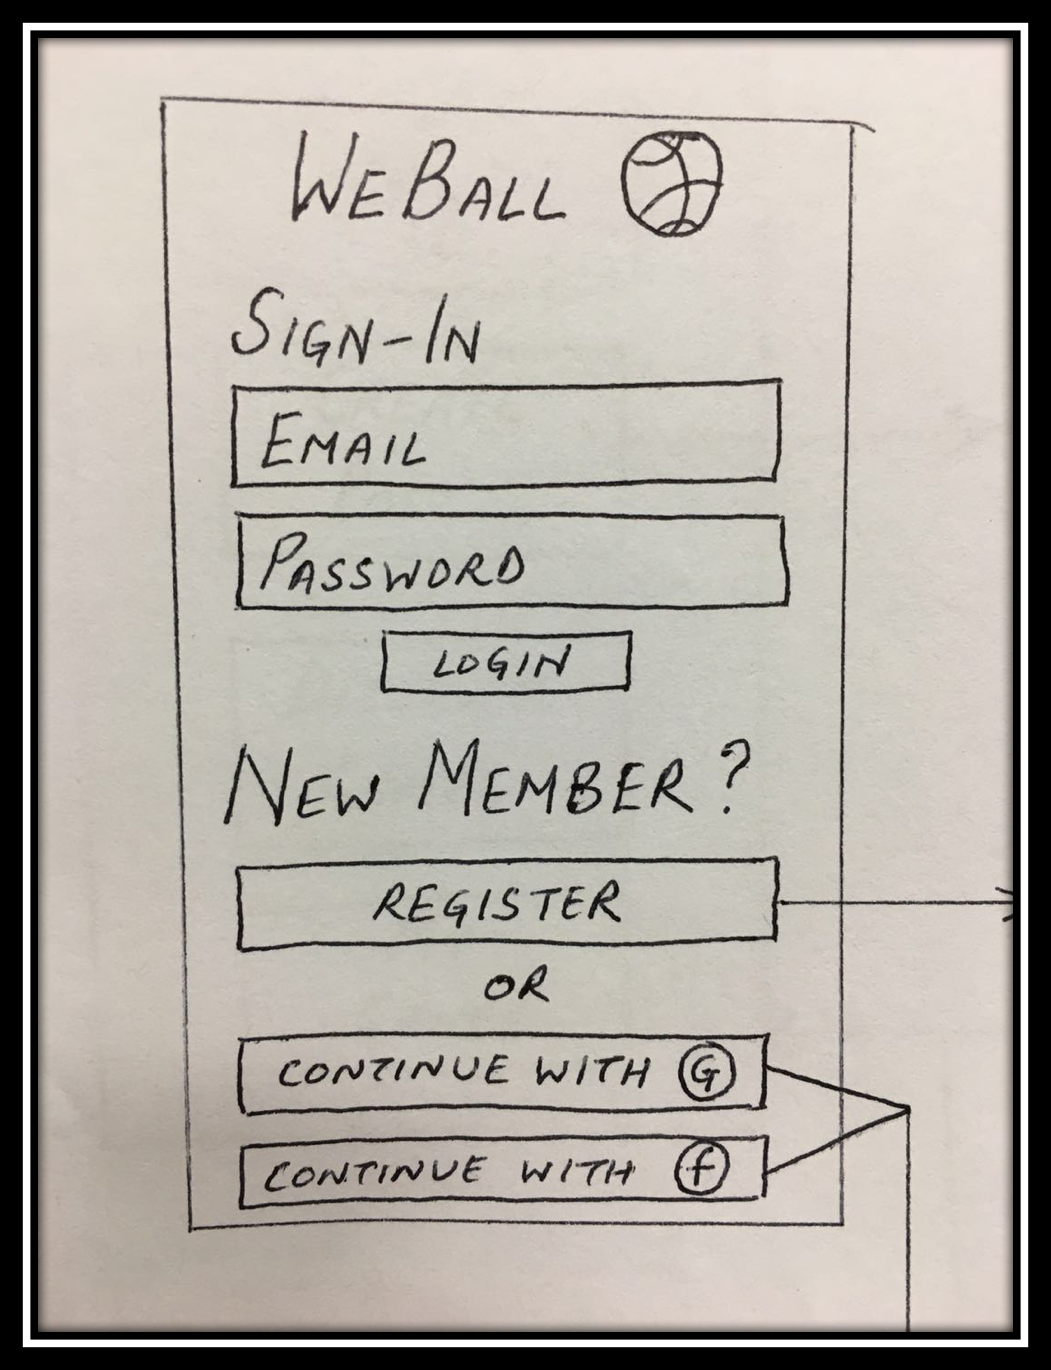 WEBALL
SIGN-IN
EMAIL
PASSWORD
LOGIN
NEW MEMBER?
REGISTER
OR
CONTINUE WITH G
CONTINUE WITH f